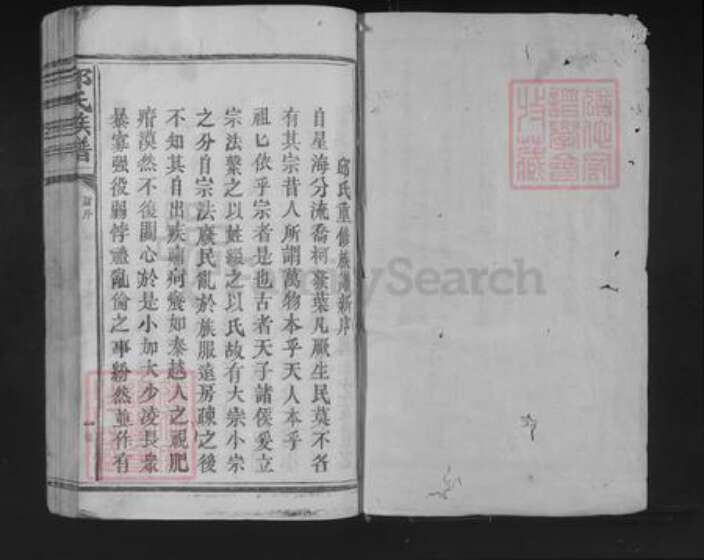 邱氏重修族譜新序
自星海分流喬柯發葉凡厥生民莫不各
有其宗昔人所謂萬物本乎天人本乎
祖匕依乎宗者是也古者天子諸侯爰立
宗法繫之以姓綴之以氏故有大宗小宗
之分自宗法廢民亂於族服遠房疎之後
不知其自出疾痛疴癢如秦越人之視肥
瘠漠然不復關心於是小加大少凌長衆
暴寡强役弱悖禮亂倫之事紛然並作有
邱氏族譜
新序
一
FamilySearch